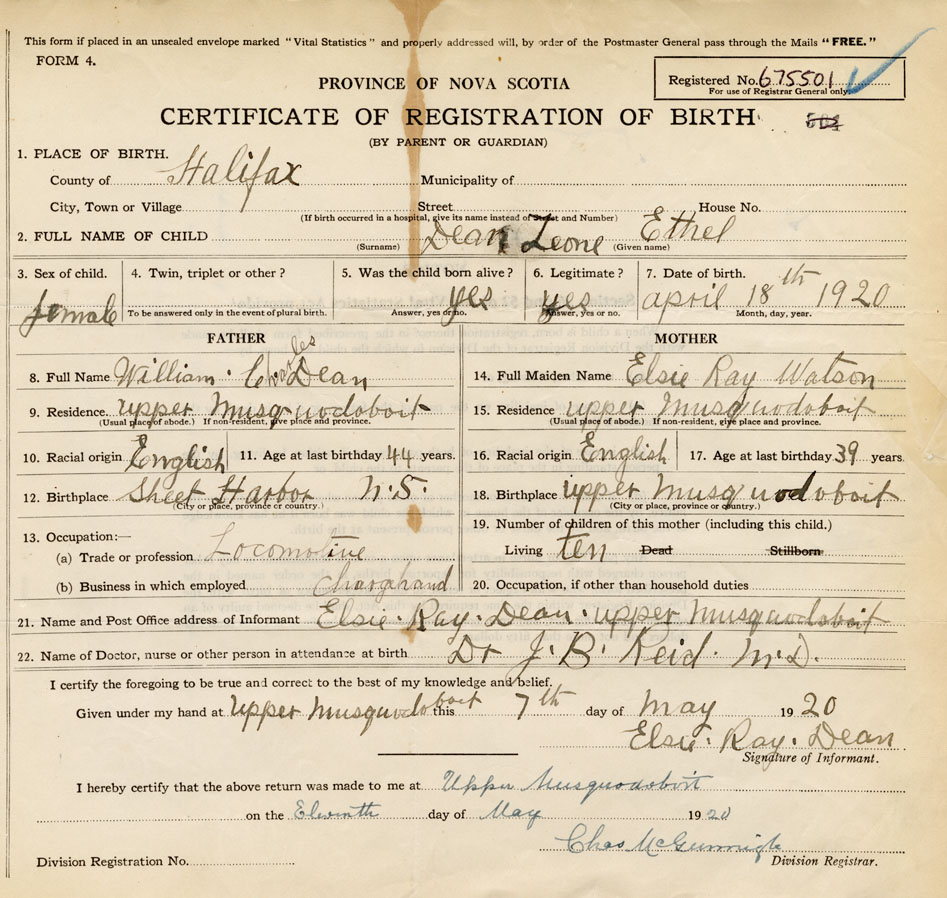 This form if placed in an unsealed envelope marked "Vital Statistics" and properly addressed will, by order of the Postmaster General pass through the Mails "FREE."
FORM 4.
Registered No. 675501
For use of Registrar General only.
PROVINCE OF NOVA SCOTIA
CERTIFICATE OF REGISTRATION OF BIRTH
(BY PARENT OR GUARDIAN)
1. PLACE OF BIRTH.
County of Halifax Municipality of
City, Town or Village Street House No.
(If birth occurred in a hospital, give its name instead of Street and Number)
2. FULL NAME OF CHILD Dean Leone Ethel
(Surname) (Given name)
3. Sex of child. 4. Twin, triplet or other? 5. Was the child born alive? 6. Legitimate? 7. Date of birth.
female yes yes april 18th 1920
To be answered only in the event of plural birth. Answer, yes or no. Answer, yes or no. Month, day, year.
FATHER MOTHER
8. Full Name William Charles Dean 14. Full Maiden Name Elsie Ray Watson
9. Residence. upper Musquodoboit 15. Residence upper Musquodoboit
(Usual place of abode.) If non-resident, give place and province. (Usual place of abode.) If non-resident, give place and province.
10. Racial origin English 11. Age at last birthday 44 years. 16. Racial origin English 17. Age at last birthday 39 years.
12. Birthplace Sheet Harbor N.S. 18. Birthplace upper Musquodoboit
(City or place, province or country.) (City or place, province or country.)
19. Number of children of this mother (including this child.)
13. Occupation:—
(a) Trade or profession Locomotive Living ten Dead Stillborn
(b) Business in which employed Charghand 20. Occupation, if other than household duties
21. Name and Post Office address of Informant Elsie. Ray. Dean. upper Musquodoboit
22. Name of Doctor, nurse or other person in attendance at birth Dr J. B. Reid. M.D.
I certify the foregoing to be true and correct to the best of my knowledge and belief.
Given under my hand at Upper Musquodoboit this 7th day of May 1920
Elsie. Ray. Dean
Signature of Informant.
I hereby certify that the above return was made to me at Upper Musquodoboit
on the Eleventh day of May 1920
Chas McGunnigle
Division Registration No. Division Registrar.